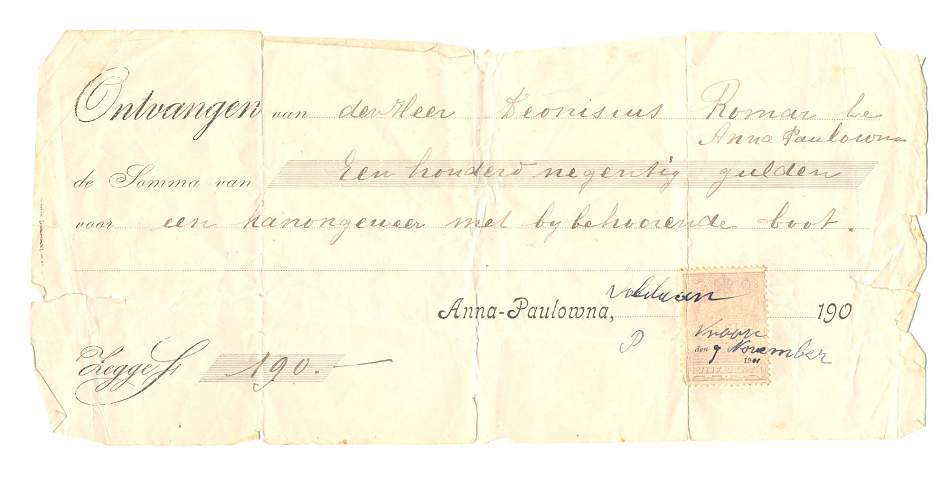 Ontvangen van den Heer Deonisius Romar te
Anna Paulowna
de Somma van Een honderd negentig gulden
voor een kanongeweer met bybehoorende boot.
voldaan
Anna-Paulowna, 190
den 9 November
190
Zegge f 190.-